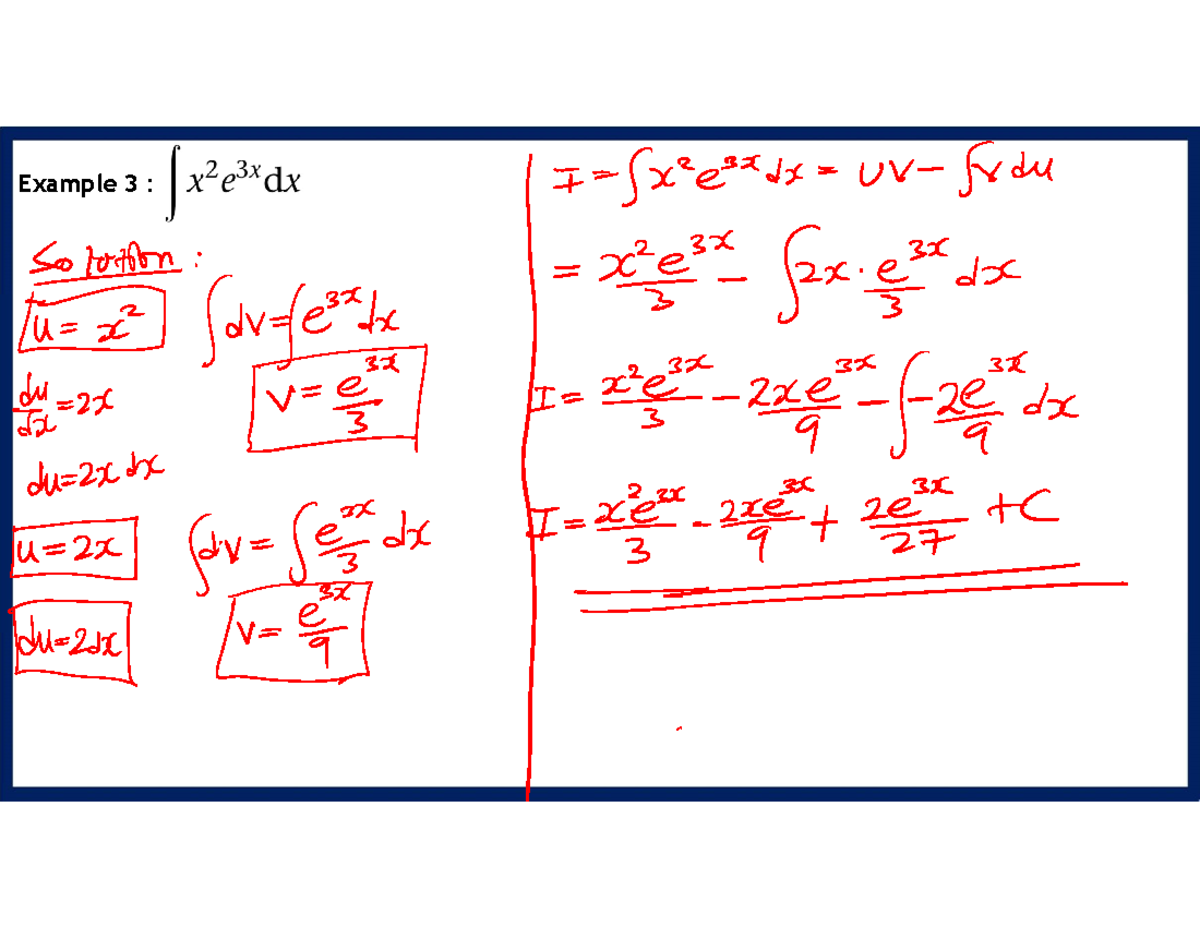 Example 3 : ∫ x²e³ˣ dx
Solution :
u = x²
∫dv = ∫e³ˣ dx
du/dx = 2x
v = e³ˣ/3
du = 2x dx
u = 2x
∫dv = ∫ e³ˣ/3 dx
du = 2dx
v = e³ˣ/9
I = ∫x²e³ˣ dx = uv − ∫v du
= x²e³ˣ/3 − ∫2x · e³ˣ/3 dx
I = x²e³ˣ/3 − 2xe³ˣ/9 − ∫−2e³ˣ/9 dx
I = x²e³ˣ/3 − 2xe³ˣ/9 + 2e³ˣ/27 + C